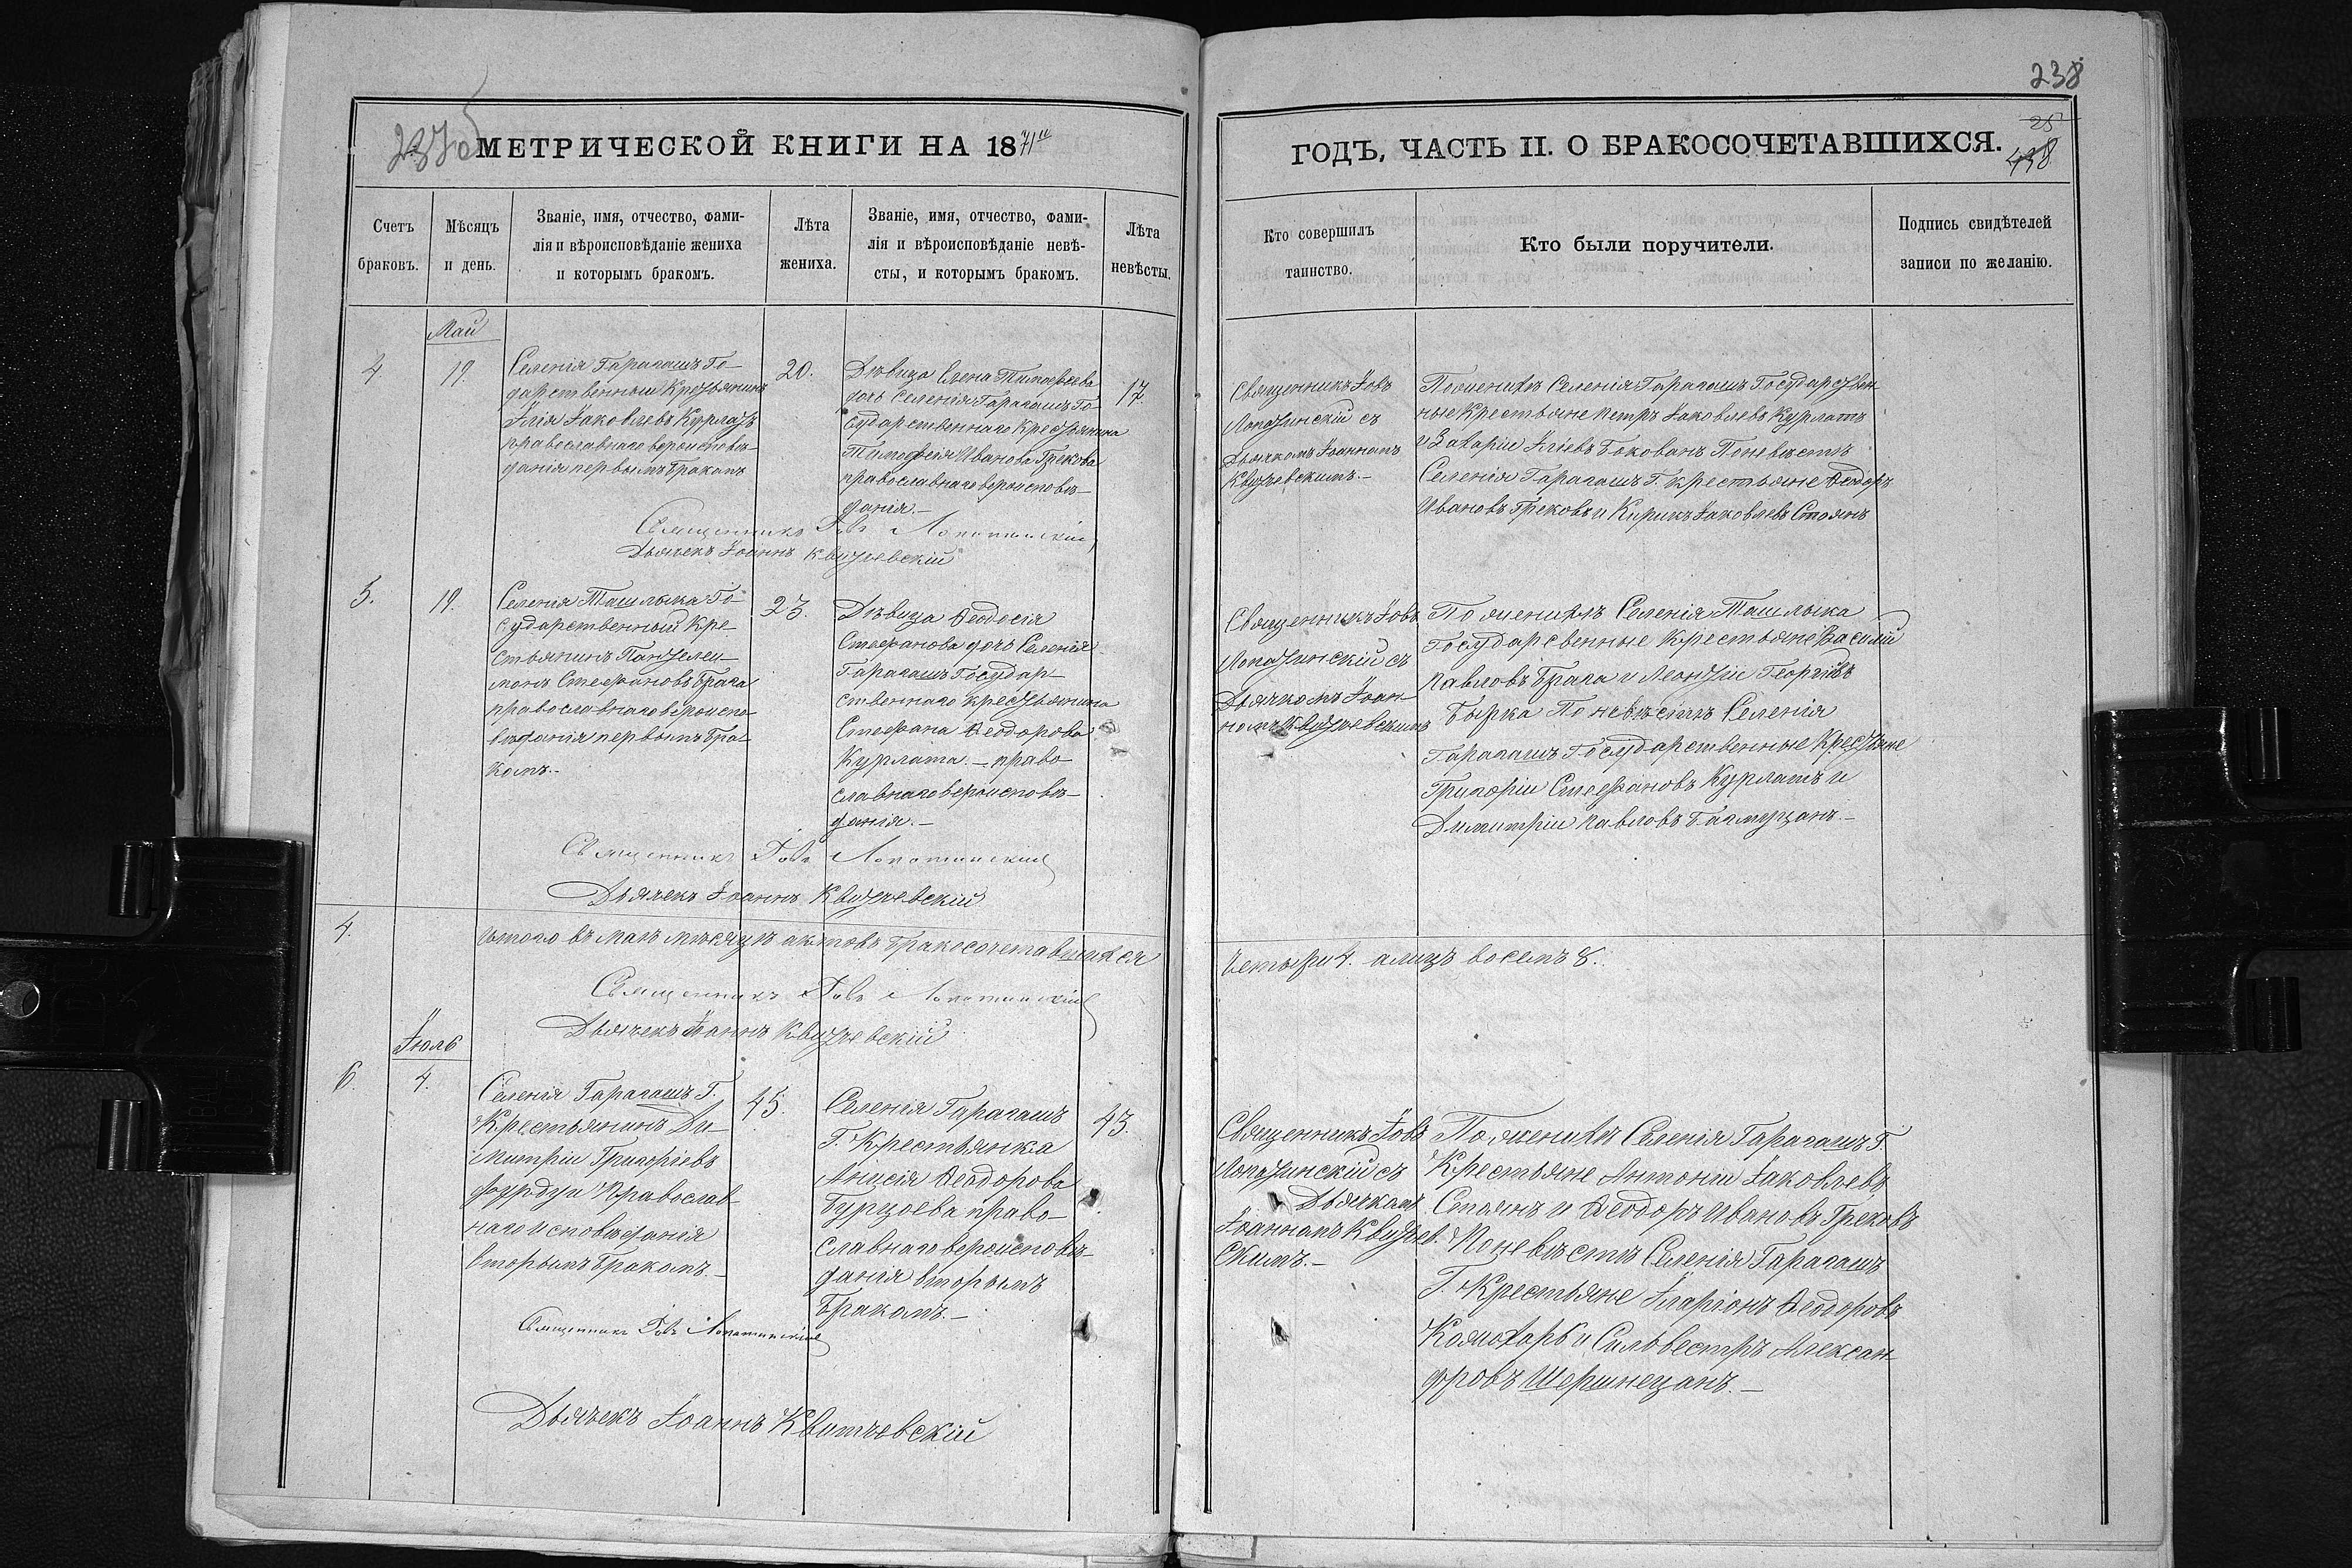 238
МЕТРИЧЕСКОЙ КНИГИ НА 1871й
ГОДЪ, ЧАСТЬ II. О БРАКОСОЧЕТАВШИХСЯ.
25
438
Счетъ
браковъ.
Мѣсяцъ
и день.
Званіе, имя, отчество, фами-
лія и вѣроисповѣданіе жениха
и которымъ бракомъ.
Лѣта
жениха.
Званіе, имя, отчество, фами-
лія и вѣроисповѣданіе невѣ-
сты, и которымъ бракомъ.
Лѣта
невѣсты.
Кто совершилъ
таинство.
Кто были поручители.
Подпись свидѣтелей
записи по желанію.
Май
4.
19.
Селенія Гарагашъ Го-
дарственный Крестьянинъ
Илія Іаковлевъ Курлатъ
православнаго вероисповѣ-
данія первымъ бракомъ
20.
Дѣвица Елена Тимофеева
дочь Селенія Гарагашъ Го-
сударственнаго Крестьянина
Тимофея Иванова Грекова
православнаго вероисповѣ-
данія.-
17.
Священникъ Іовъ
Лопатинскій съ
Дьячкомъ Іоанномъ
Квитчевскимъ.-
По женихѣ Селенія Гарагашъ Государствен-
ные Крестьяне Петръ Іаковлевъ Курлатъ
и Захаріи Иліевъ Боковинъ По невѣсте
Селенія Гарагашъ Г. крестьяне Ѳеодоръ
Ивановъ Грековъ и Кирикъ Іаковлевъ Стоянъ
Священникъ Іовъ Лопатинскій
Дьячекъ Іоаннъ Квитчевскій
5.
19.
Селенія Ташлыка Го-
сударственный Кре-
стьянинъ Пантелеи-
монъ Стефановъ Брага
православнаго вероиспо-
вѣданія первымъ бра-
комъ.-
23.
Дѣвица Ѳеодосія
Стефанова дочь Селенія
Гарагашъ Государ-
ственнаго крестьянина
Стефана Ѳеодорова
Курлата.- право-
славнаго вероисповѣ-
данія.-
Священникъ Іовъ
Лопатинскій съ
Дьячкомъ Іоан-
номъ Квитчевскимъ
По женихѣ Селенія Ташлыка
Государсвенные Крестьяне Василій
Павловъ Брага и Леонтіи Георгіевъ
Бырка По невѣстѣ Селенія
Гарагашъ Государственные Крестьяне
Григоріи Стефановъ Курлатъ и
Димитріи Павловъ
Священникъ Іовъ Лопатинскій
Дьячекъ Іоаннъ Квитчевскій
4.
Итого въ маѣ мѣсяцѣ актовъ бракосочетавшихся
Четыри 4. а лицъ восемъ 8.
Священникъ Іовъ Лопатинскій
Дьячекъ Іоаннъ Квитчевскій
Іюль
6.
4.
Селенія Гарагашъ Г.
Крестьянинъ Ди-
митріи Григоріевъ
Православ-
наго исповѣданія
вторымъ бракомъ.-
45.
Селенія Гарагашъ
Г. Крестьянка
Анисія Ѳеодорова
право-
славнаго вероисповѣ-
данія вторымъ
бракомъ.-
43.
Священникъ Іовъ
Лопатинскій съ
Дьячкомъ
Іоанномъ Квитчев-
скимъ.-
По женихѣ Селенія Гарагашъ Г.
Крестьяне Антоніи Іаковлевъ
Стоянъ и Ѳеодоръ Ивановъ Грековъ
По невѣстѣ Селенія Гарагашъ
Г. Крестьяне Иларіонъ Ѳеодоровъ
и Сильвестръ Алексан-
дровъ Шершнецанъ.-
Священникъ Іовъ Лопатинскій
Дьячекъ Іоаннъ Квитчевскій